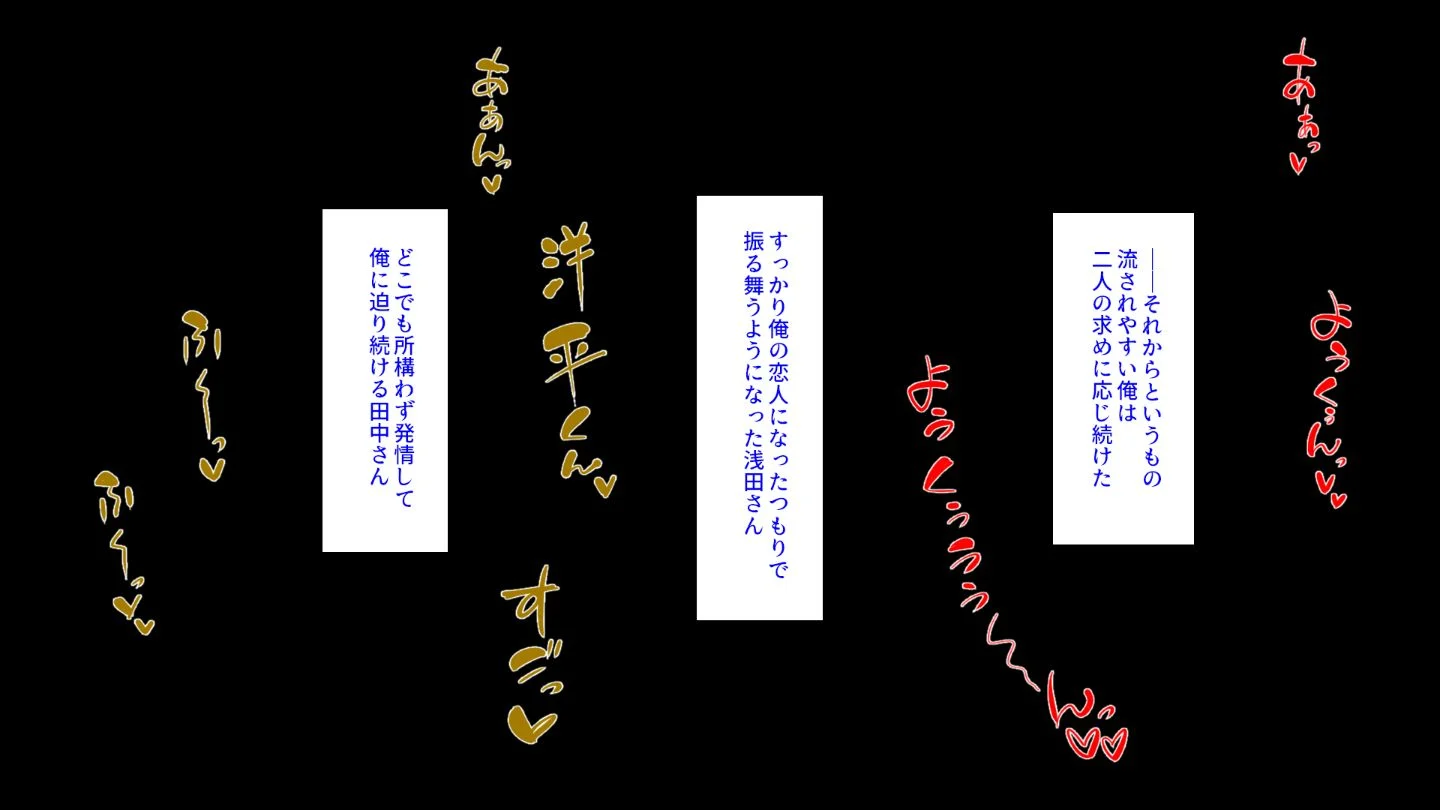 あぁっ♥
ようくぅんっ♥♥
――それからというもの
流されやすい俺は
二人の求めに応じ続けた
ようくぅううぅ〜んっ♥♥
すっかり俺の恋人になったつもりで
振る舞うようになった浅田さん
あぁんっ♥
洋平くん♥
すごっ♥
どこでも所構わず発情して
俺に迫り続ける田中さん
ふ〜っ♥
ふ〜っ♥♥